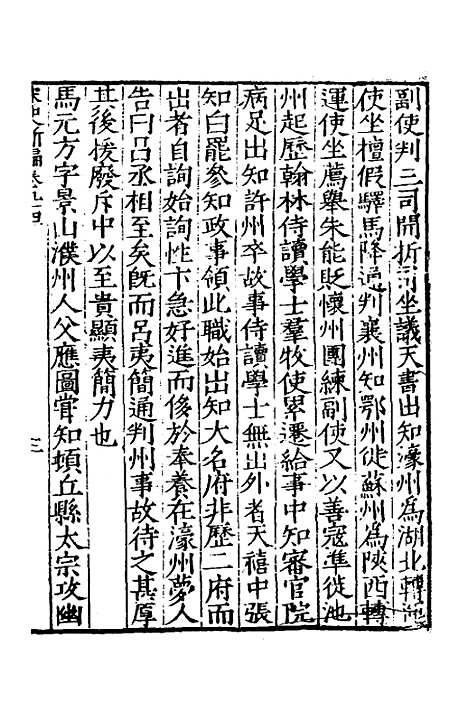 副使判三司開折司坐議天書出知濠州為湖北轉運
使坐檀假驛馬降通判襄州知鄂州徙蘇州為陝西轉
運使坐薦舉朱能貶懷州團練副使又以善寇準徙池
州起歷翰林侍讀學士羣牧使累遷給事中知審官院
病足出知許州卒故事侍讀學士無出外者天禧中張
知白罷參知政事領此職始出知大名府非歷二府而
出者自詢始詢性卞急好進而侈於奉養在濠州夢人
告曰呂丞相至矣旣而呂夷簡通判州事故待之甚厚
其後援廢斥中以至貴顯夷簡力也
馬元方字景山濮州人父應圖嘗知頓丘縣太宗攻幽
宋史新編卷九十四